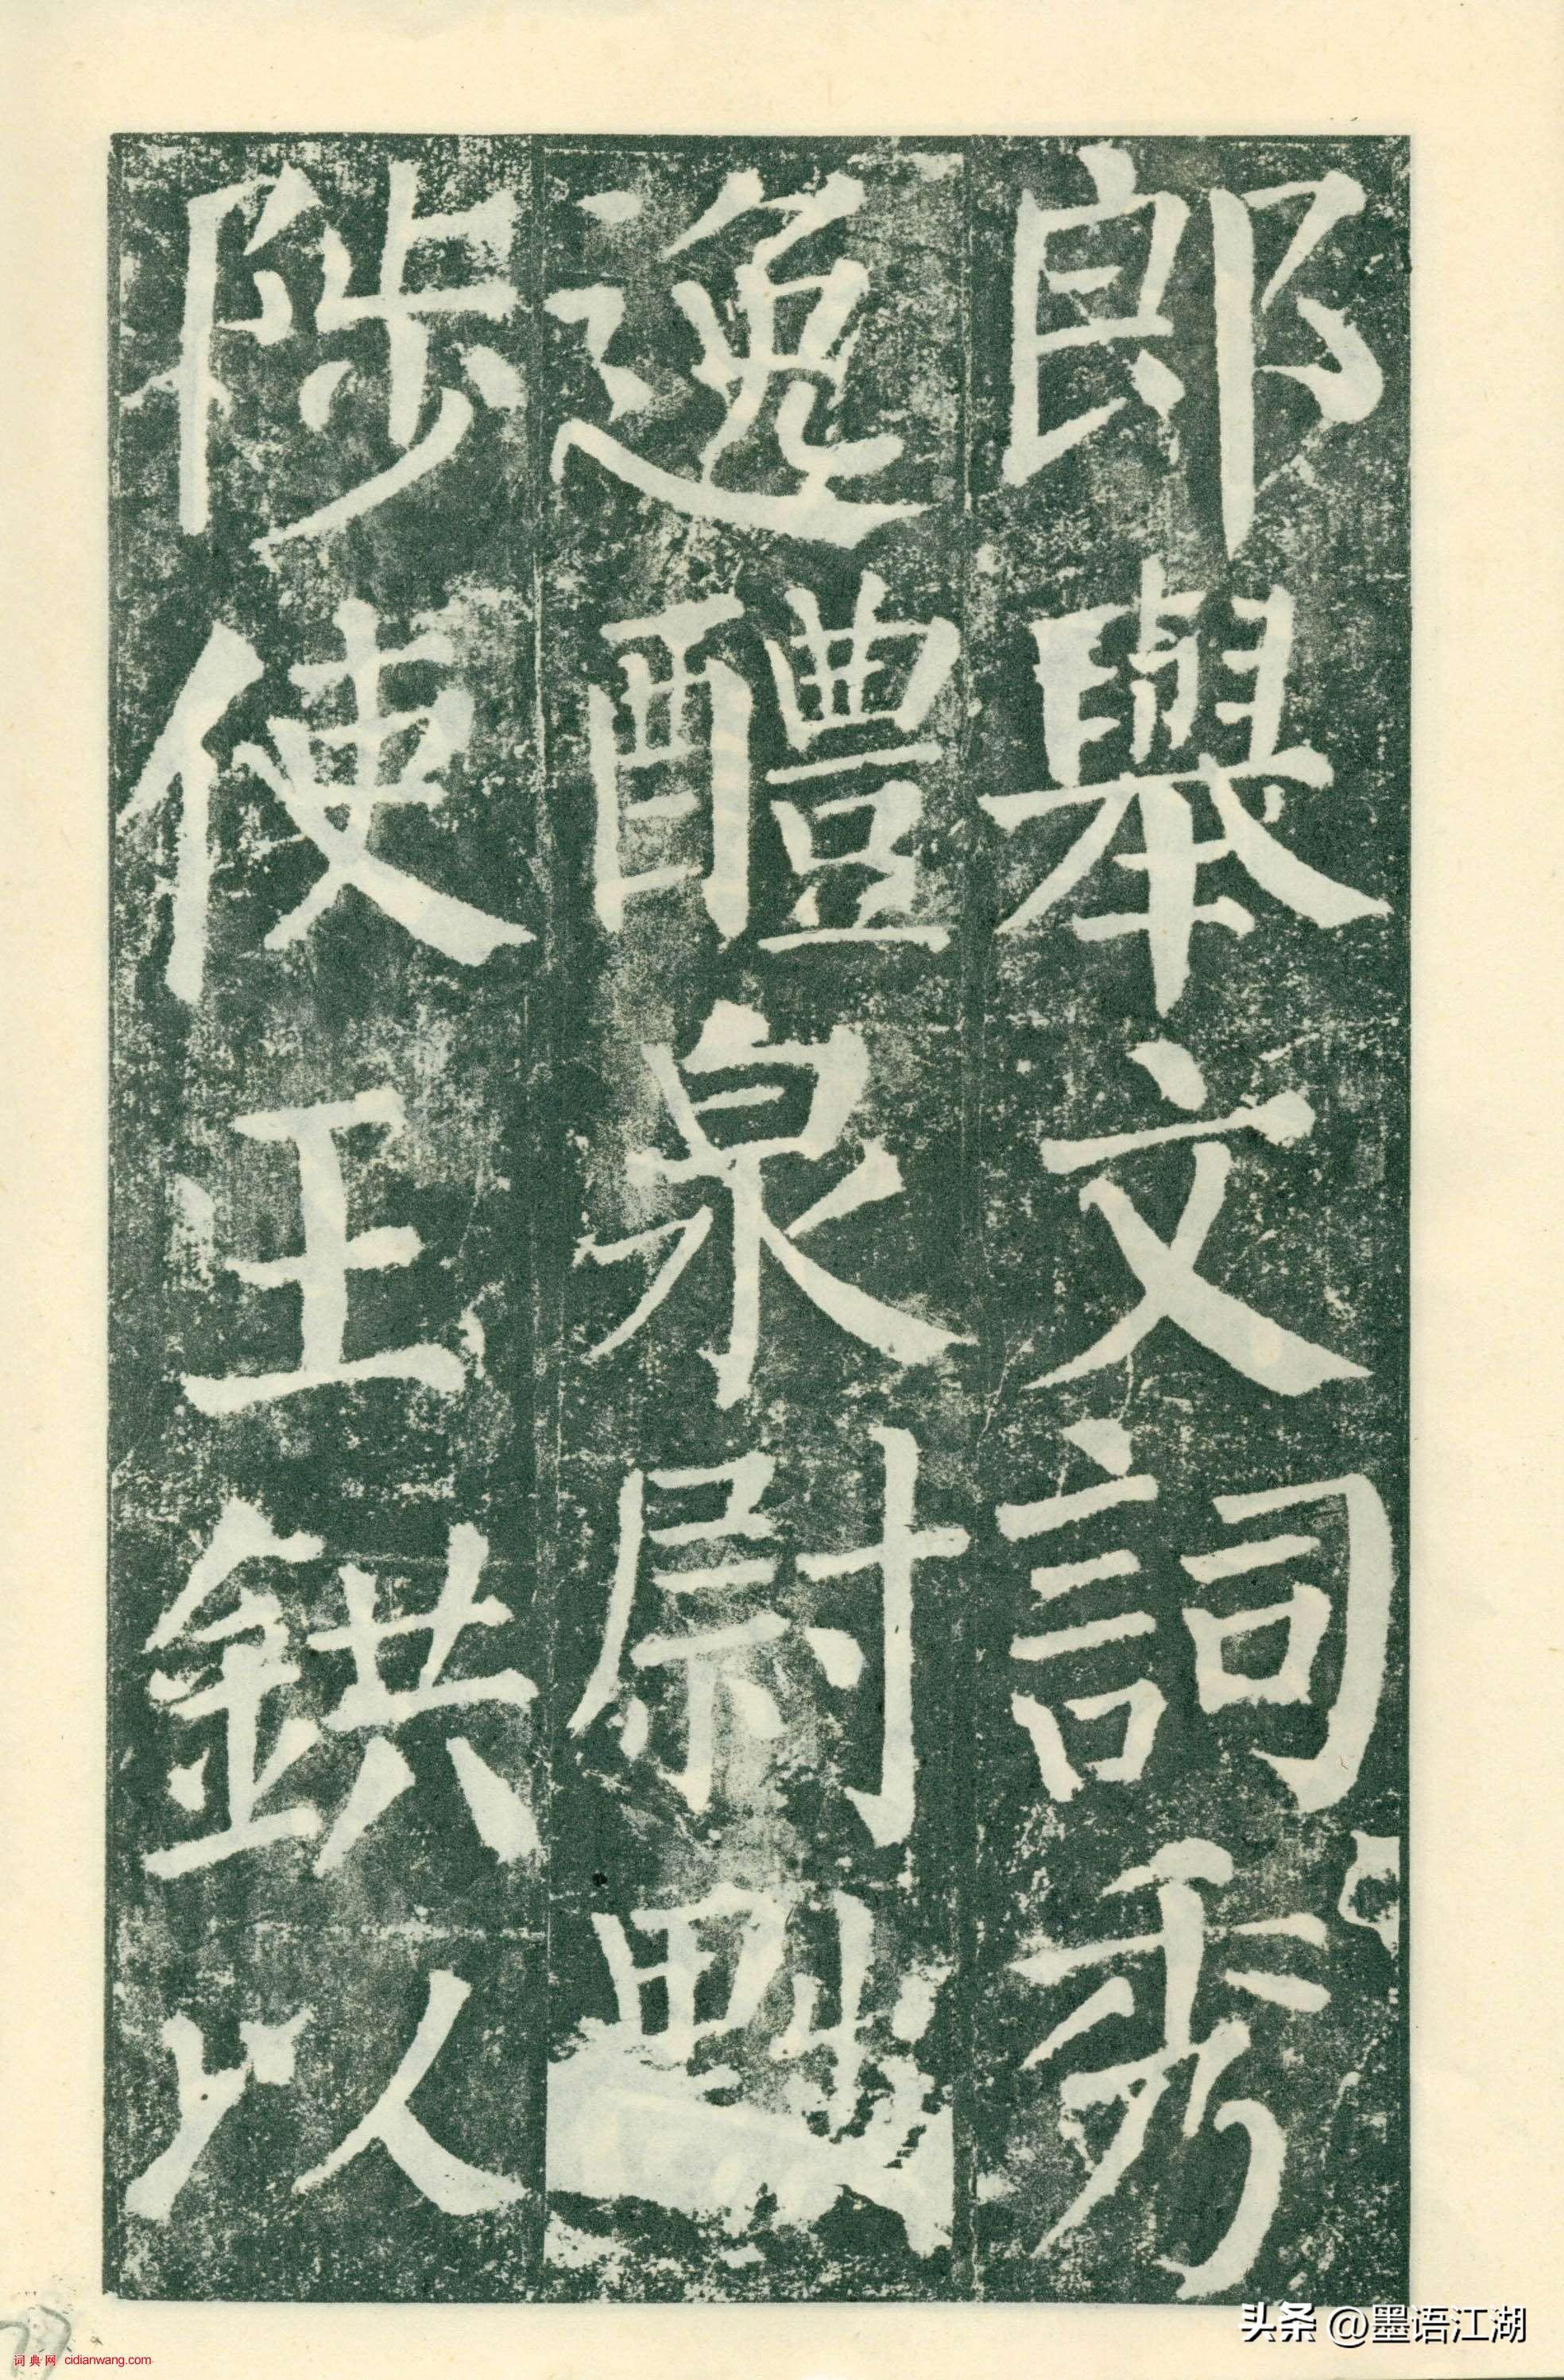 郎舉文詞秀
逸醴泉尉黜
陟使王鉷以
头条 @墨语江湖
词典网 cidianwang.com